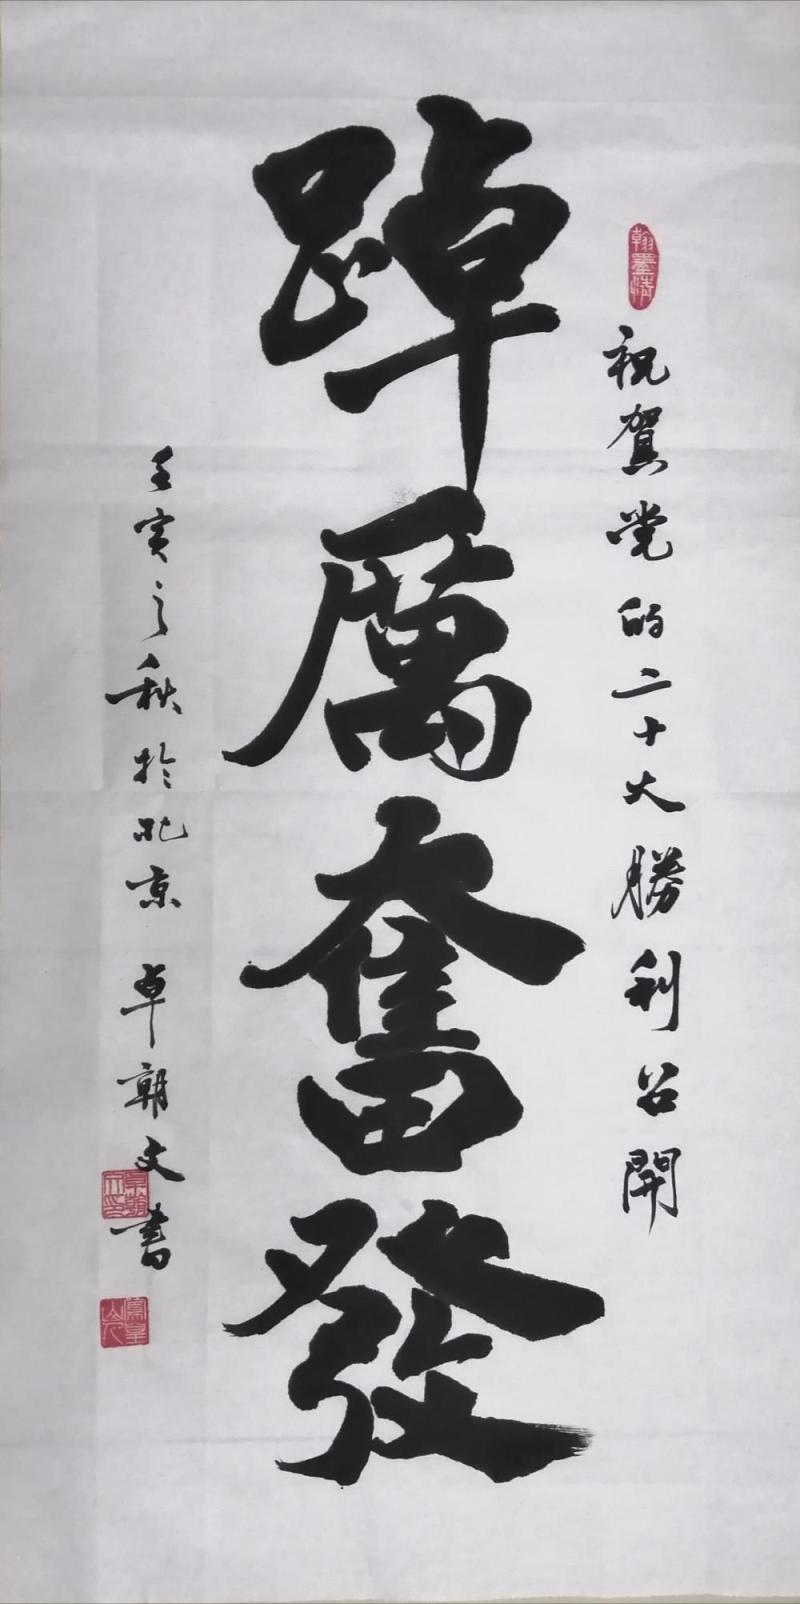 踔厲奮發
祝賀党的二十大勝利召開
壬寅之秋於北京 卓朝文書
翰墨清